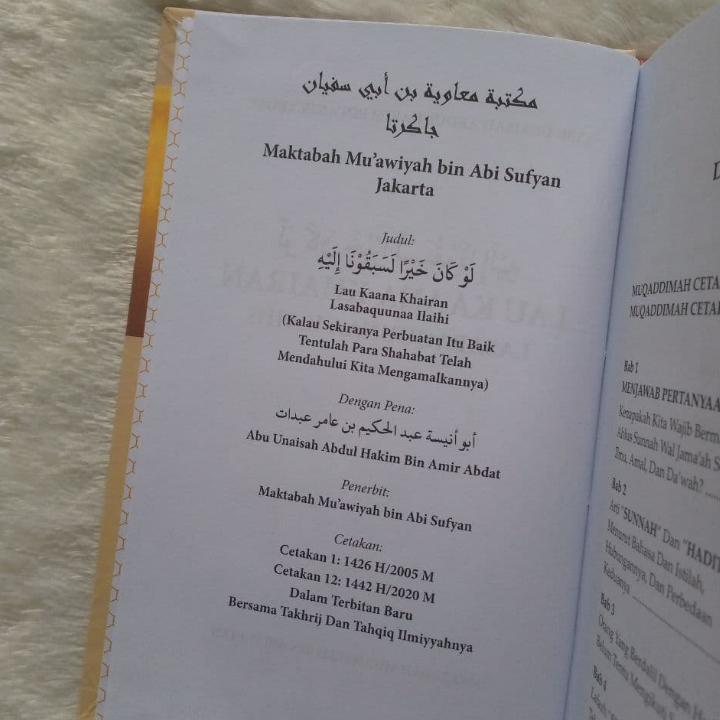 مكتبة معاوية بن أبي سفيان
جاكرتا
Maktabah Mu'awiyah bin Abi Sufyan
Jakarta
Judul:
لَوْ كَانَ خَيْرًا لَسَبَقُوْنَا إِلَيْهِ
Lau Kaana Khairan
Lasabaquunaa Ilaihi
(Kalau Sekiranya Perbuatan Itu Baik
Tentulah Para Shahabat Telah
Mendahului Kita Mengamalkannya)
Dengan Pena:
أبو أنيسة عبد الحكيم بن عامر عبدات
Abu Unaisah Abdul Hakim Bin Amir Abdat
Penerbit:
Maktabah Mu'awiyah bin Abi Sufyan
Cetakan:
Cetakan 1: 1426 H/2005 M
Cetakan 12: 1442 H/2020 M
Dalam Terbitan Baru
Bersama Takhrij Dan Tahqiq Ilmiyyahnya
MUQADDIMAH CETA
MUQADDIMAH CETA
Bab 1
MENJAWAB PERTANYAA
Kenapakah Kita Wajib Berma
Ahlus Sunnah Wal Jama'ah S
Ilmu, Amal, Dan Da'wah?
Bab 2
Arti "SUNNAH" Dan "HADI
Menurut Bahasa Dan Istilah,
Hubungannya, Dan Perbedaan
Keduanya
Bab 3
Orang Yang Berdalil Dengan H
Belum Tentu Mengikuti
Bab 4